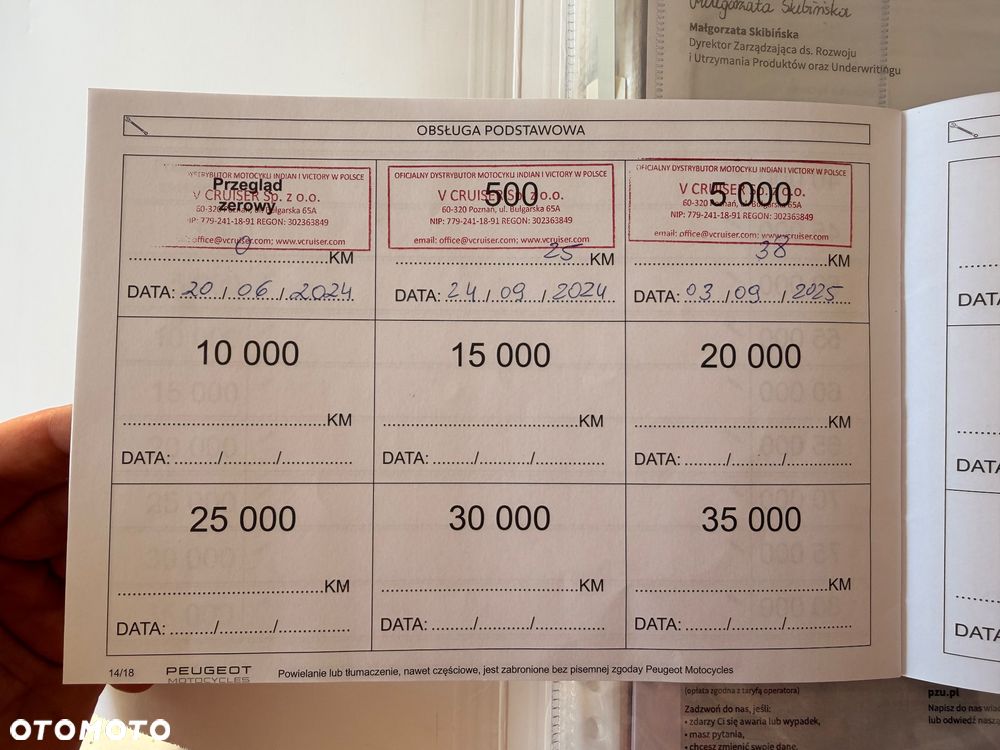 Małgorzata Skibińska
Małgorzata Skibińska
Dyrektor Zarządzająca ds. Rozwoju
i Utrzymania Produktów oraz Underwritingu
OBSŁUGA PODSTAWOWA
DYSTRYBUTOR MOTOCYKLI INDIAN I VICTORY W POLSCE
Przegląd
zerowy
V CRUISER Sp. z o.o.
60-320 Poznań, ul. Bułgarska 65A
NIP: 779-241-18-91 REGON: 302363849
office@vcruiser.com; www.vcruiser.com
0 KM
DATA: 20 / 06 / 2024
OFICJALNY DYSTRYBUTOR MOTOCYKLI INDIAN I VICTORY W POLSCE
500
V CRUISER Sp. z o.o.
60-320 Poznań, ul. Bułgarska 65A
NIP: 779-241-18-91 REGON: 302363849
email: office@vcruiser.com; www.vcruiser.com
25 KM
DATA: 24 / 09 / 2024
OFICJALNY DYSTRYBUTOR MOTOCYKLI INDIAN I VICTORY W POLSCE
5 000
V CRUISER Sp. z o.o.
60-320 Poznań, ul. Bułgarska 65A
NIP: 779-241-18-91 REGON: 302363849
email: office@vcruiser.com; www.vcruiser.com
38 KM
DATA: 03 / 09 / 2025
10 000
KM
DATA: ......../........./.............
15 000
KM
DATA: ......../........./.............
20 000
KM
DATA: ......../........./.............
25 000
KM
DATA: ......../........./.............
30 000
KM
DATA: ......../........./.............
35 000
KM
DATA: ......../........./.............
14/18
PEUGEOT
MOTOCYCLES
Powielanie lub tłumaczenie, nawet częściowe, jest zabronione bez pisemnej zgoday Peugeot Motocycles
DATA
DATA
DATA
(opłata zgodna z taryfą operatora)
Zadzwoń do nas, jeśli:
• zdarzy Ci się awaria lub wypadek,
• masz pytania,
• chcesz zmienić swoje dane.
pzu.pl
Napisz do nas
lub odwiedź
OTOMOTO